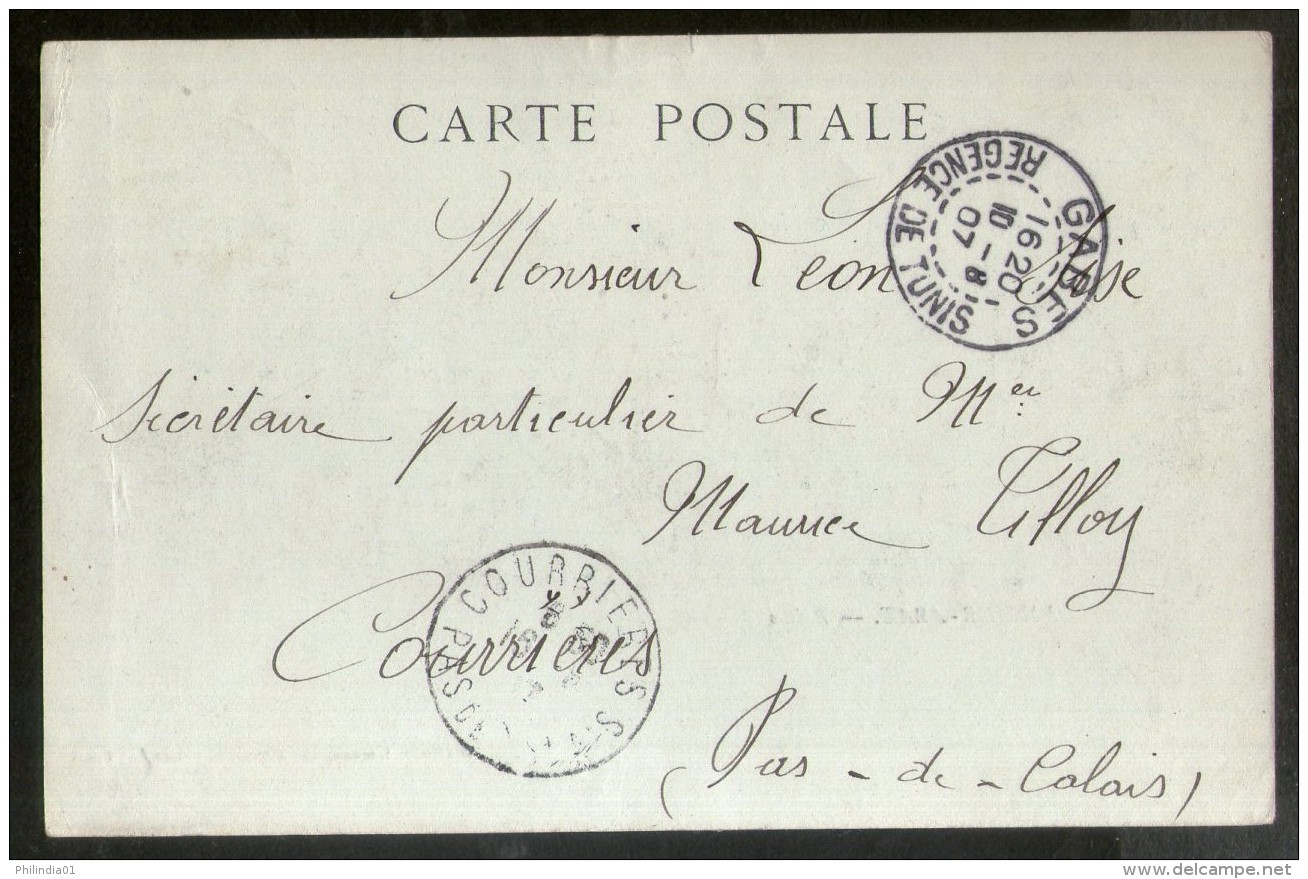 CARTE POSTALE
GABES
1620
10 - 8
07
REGENCE DE TUNIS
Monsieur Léon
Sécrétaire particulier de
Maurice Tilloy
COURRIERES
PAS
Courrières
(Pas - de - Calais)
Philindia01
www.delcampe.net